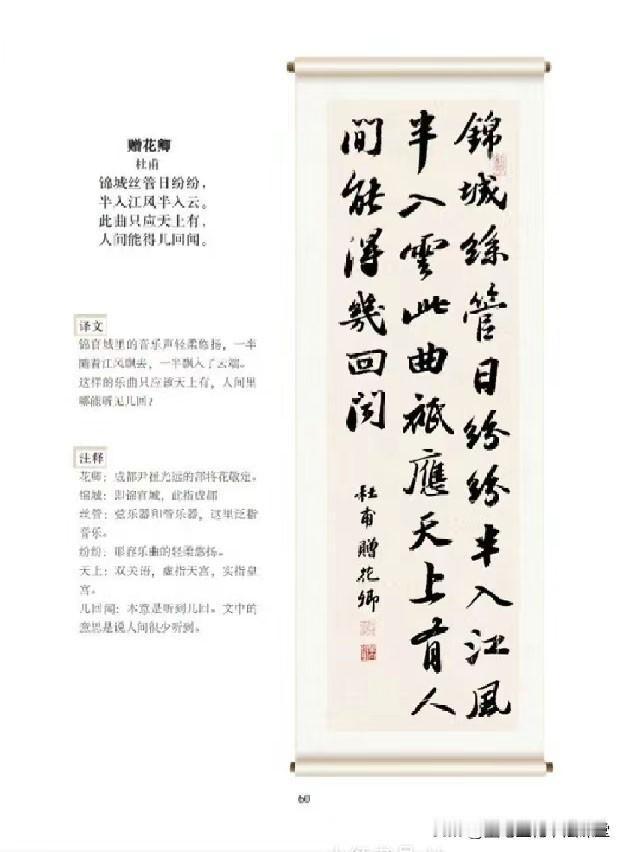 赠花卿
杜甫
锦城丝管日纷纷，
半入江风半入云。
此曲只应天上有，
人间能得几回闻。
译文
锦官城里的音乐声轻柔悠扬，一半
随着江风飘去，一半飘入了云端。
这样的乐曲只应该天上有，人间里
哪能听见几回？
注释
花卿：成都尹崔光远的部将花敬定。
锦城：即锦官城，此指成都
丝管：弦乐器和管乐器，这里泛指
音乐。
纷纷：形容乐曲的轻柔悠扬。
天上：双关语，虚指天宫，实指皇
宫。
几回闻：本意是听到几回。文中的
意思是说人间很少听到。
錦城絲管日紛紛半入江風
半入雲此曲祇應天上有人
間能得幾回聞
杜甫贈花卿
60